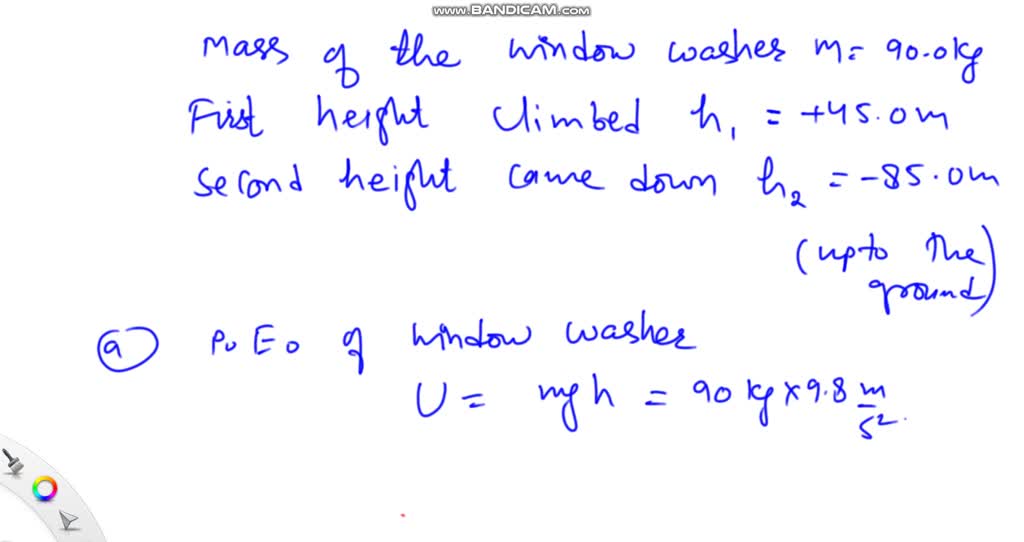 www.BANDICAM.com
Mass of the window washer m = 90.0 kg
First height climbed h₁ = +45.0 m
Second height came down h₂ = -85.0 m
(upto the
ground)
(a) P.E. of window washer
U = mgh = 90 kg × 9.8 m/s²